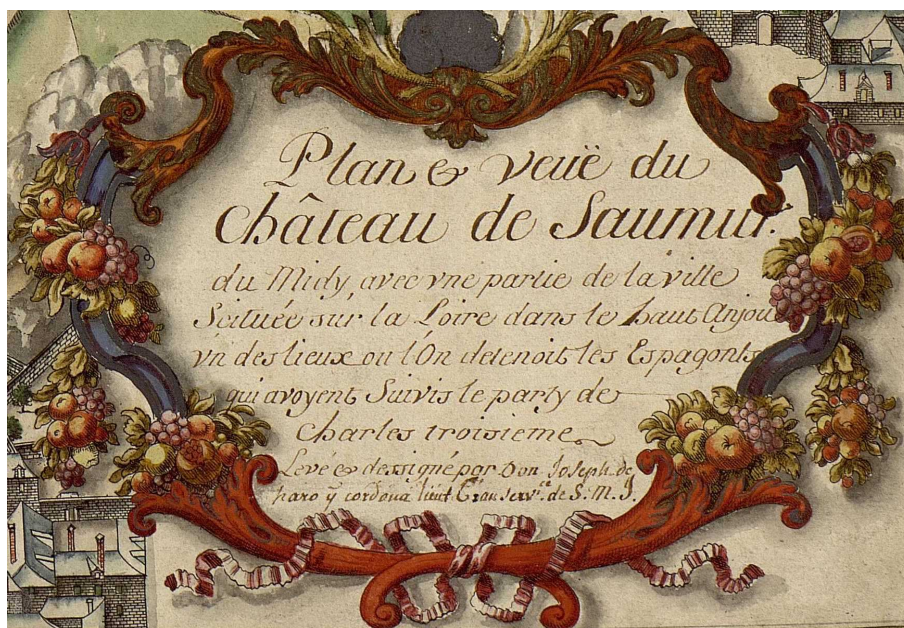 Plan & veuë du
Château de Saumur.
du Midy, avec vne partie de la ville
Scituée sur la Loire dans le haut Anjou
vn des lieux ou l'On detenoit les Espagonls
qui avoyent Suivis le party de
Charles troisieme
Levé & dessigné par Don Joseph de
haro y cordoua lieut. au Serv.ce de S. M. I.